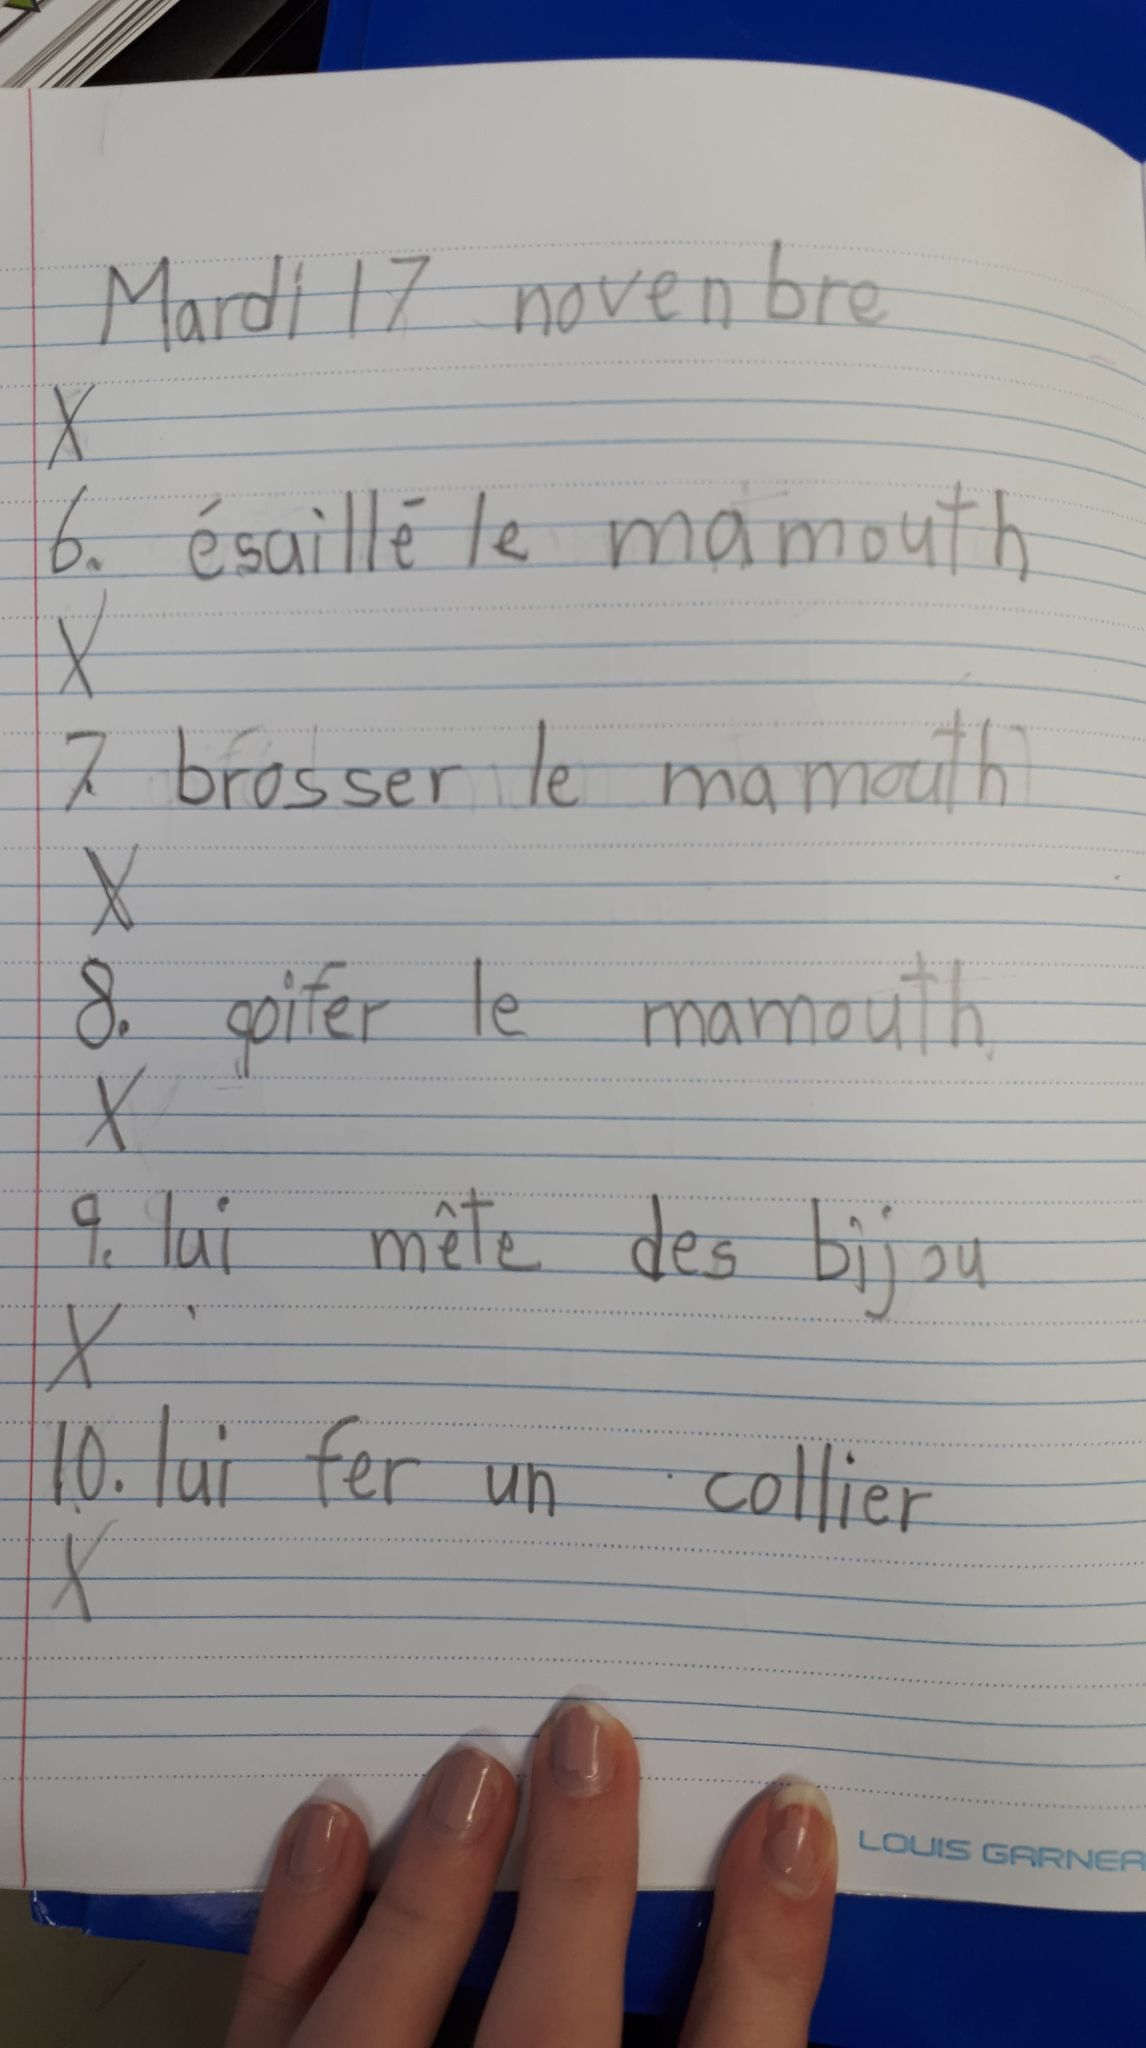 Mardi 17 novenbre
X
6. ésaillé le mamouth
X
7. brosser le mamouth
X
8. goifer le mamouth
X
9. lui mête des bijou
X
10. lui fer un collier
X
LOUIS GARNEA